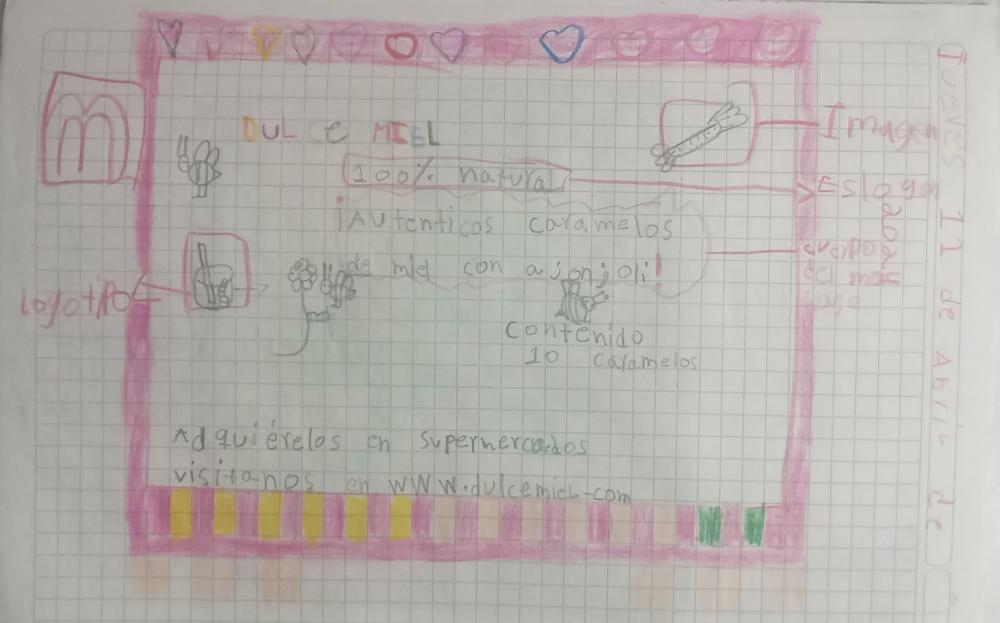 DULCE MIEL
100% natural
¡Autenticos caramelos
de miel con ajonjoli!
contenido
10 caramelos
Adquiérelos en supermercados
visitanos en WWW.dulcemiel.com
Imagen
Eslogan
cuerpo
del
Logotipo
Jueves 11 de Abril de
2024